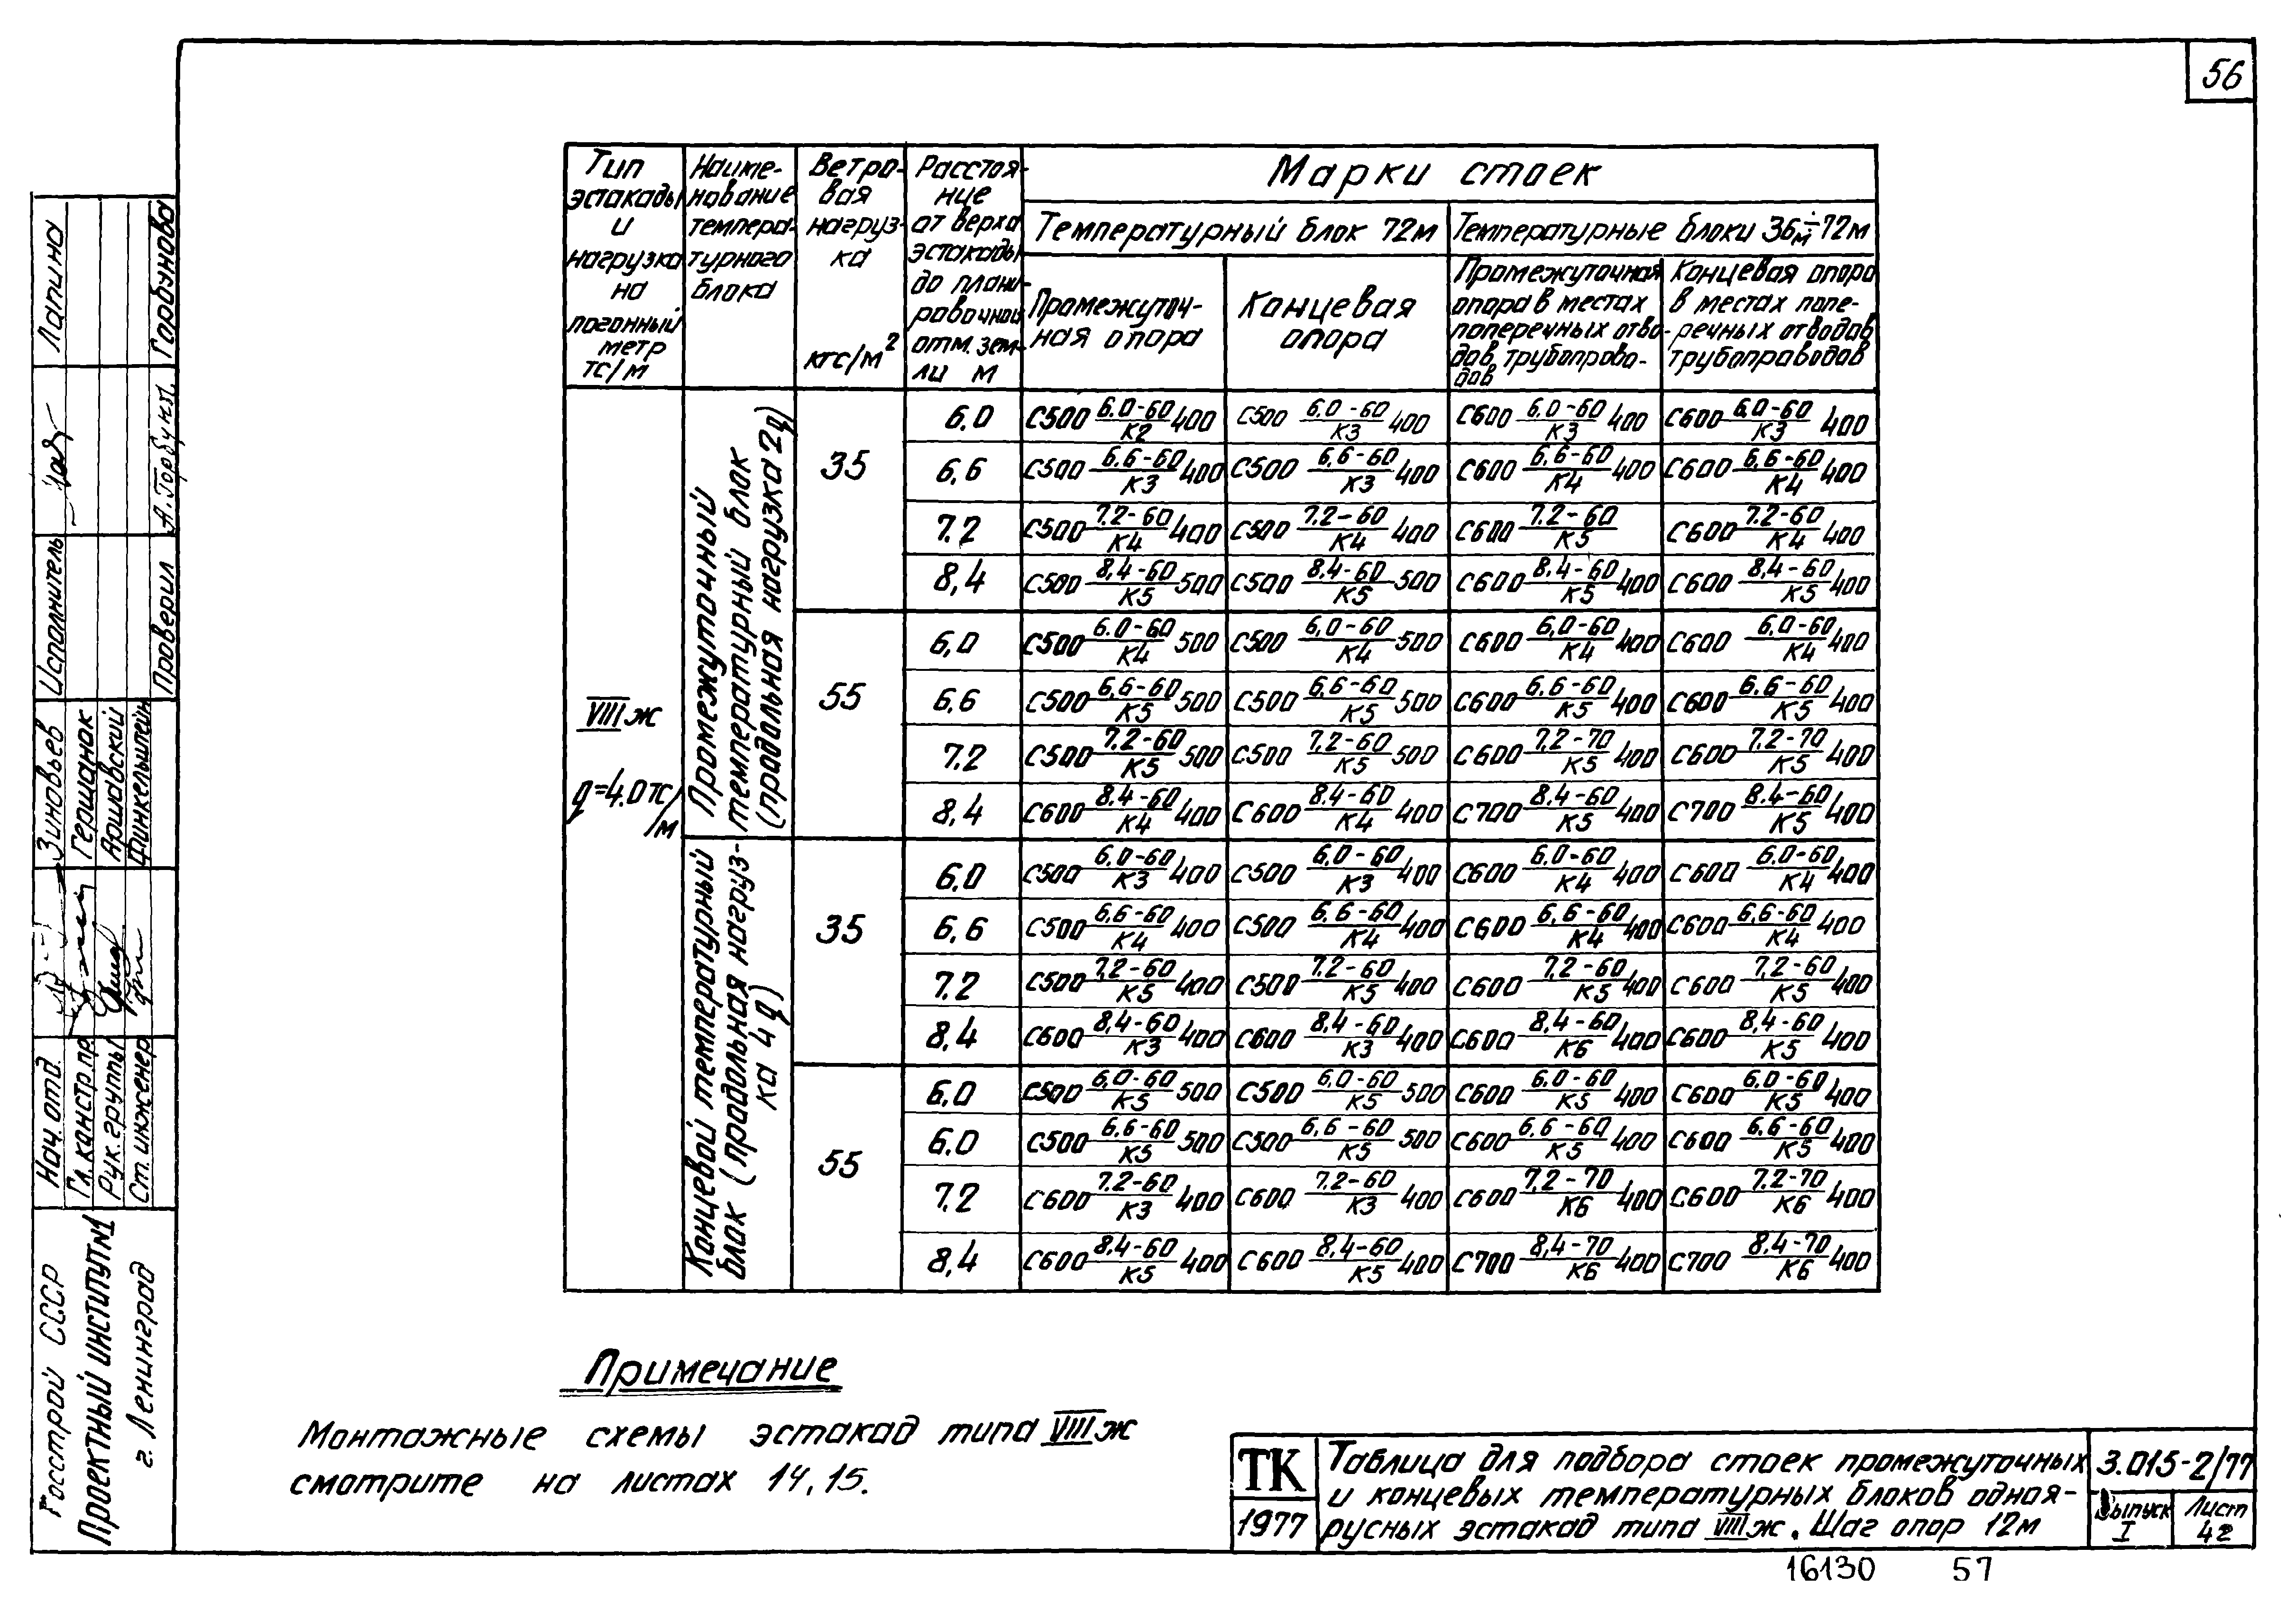 56
Тип эстакады и нагрузка на погонный метр тс/м
Наименование температурного блока
Ветровая нагрузка кгс/м²
Расстояние от верха эстакады до планировочной отм. земли м
Марки стоек
Температурный блок 72м
Температурные блоки 36м÷72м
Промежуточная опора
Концевая опора
Промежуточная опора в местах поперечных отводов трубопроводов
Концевая опора в местах поперечных отводов трубопроводов
VIIIж
q=4.0тс/м
Промежуточный температурный блок (продольная нагрузка 2q)
35
6,0 С500 6,0-60/К2 400 С500 6,0-60/К3 400 С600 6,0-60/К3 400 С600 6,0-60/К3 400
6,6 С500 6,6-60/К3 400 С500 6,6-60/К3 400 С600 6,6-60/К4 400 С600 6,6-60/К4 400
7.2 С500 7.2-60/К4 400 С500 7.2-60/К4 400 С600 7.2-60/К5 С600 7.2-60/К4 400
8,4 С500 8,4-60/К5 500 С500 8,4-60/К5 500 С600 8.4-60/К5 400 С600 8,4-60/К5 400
55
6,0 С500 6.0-60/К4 500 С500 6,0-60/К4 500 С600 6,0-60/К4 400 С600 6,0-60/К4 400
6,6 С500 6,6-60/К5 500 С500 6,6-60/К5 500 С600 6,6-60/К5 400 С600 6.6-60/К5 400
7.2 С500 7.2-60/К5 500 С500 7,2-60/К5 500 С600 7,2-70/К5 400 С600 7.2-70/К5 400
8,4 С600 8.4-60/К4 400 С600 8.4-60/К4 400 С700 8,4-60/К5 400 С700 8.4-60/К5 400
Концевой температурный блок (продольная нагрузка 4q)
35
6,0 С500 6,0-60/К3 400 С500 6,0-60/К3 400 С600 6,0-60/К4 400 С600 6,0-60/К4 400
6,6 С500 6,6-60/К4 400 С500 6,6-60/К4 400 С600 6,6-60/К4 400 С600 6,6-60/К4 400
7.2 С500 7.2-60/К5 400 С500 7.2-60/К5 400 С600 7,2-60/К5 400 С600 7,2-60/К5 400
8,4 С600 8,4-60/К3 400 С600 8,4-60/К3 400 С600 8,4-60/К6 400 С600 8,4-60/К5 400
55
6,0 С500 6,0-60/К5 500 С500 6,0-60/К5 500 С600 6,0-60/К5 400 С600 6,0-60/К5 400
6.0 С500 6.6-60/К5 500 С500 6,6-60/К5 500 С600 6,6-60/К5 400 С600 6.6-60/К5 400
7.2 С600 7.2-60/К3 400 С600 7.2-60/К3 400 С600 7,2-70/К6 400 С600 7.2-70/К6 400
8,4 С600 8.4-60/К5 400 С600 8,4-60/К5 400 С700 8,4-70/К6 400 С700 8.4-70/К6 400
Примечание
Монтажные схемы эстакад типа VIIIж
смотрите на листах 14,15.
ТК
1977
Таблица для подбора стоек промежуточных
и концевых температурных блоков одноя-
русных эстакад типа VIIIж. Шаг опор 12м
3.015-2/77
Выпуск I
Лист 42
16130 57
Госстрой СССР
Проектный институт №1
г. Ленинград
Нач. отд. Зиновьев
Гл. констр. пр. Гершанок
Рук. группы Аршавский
Ст. инженер Финкельштейн
Исполнитель Лапина
Проверил А. Горбун. Горбунова